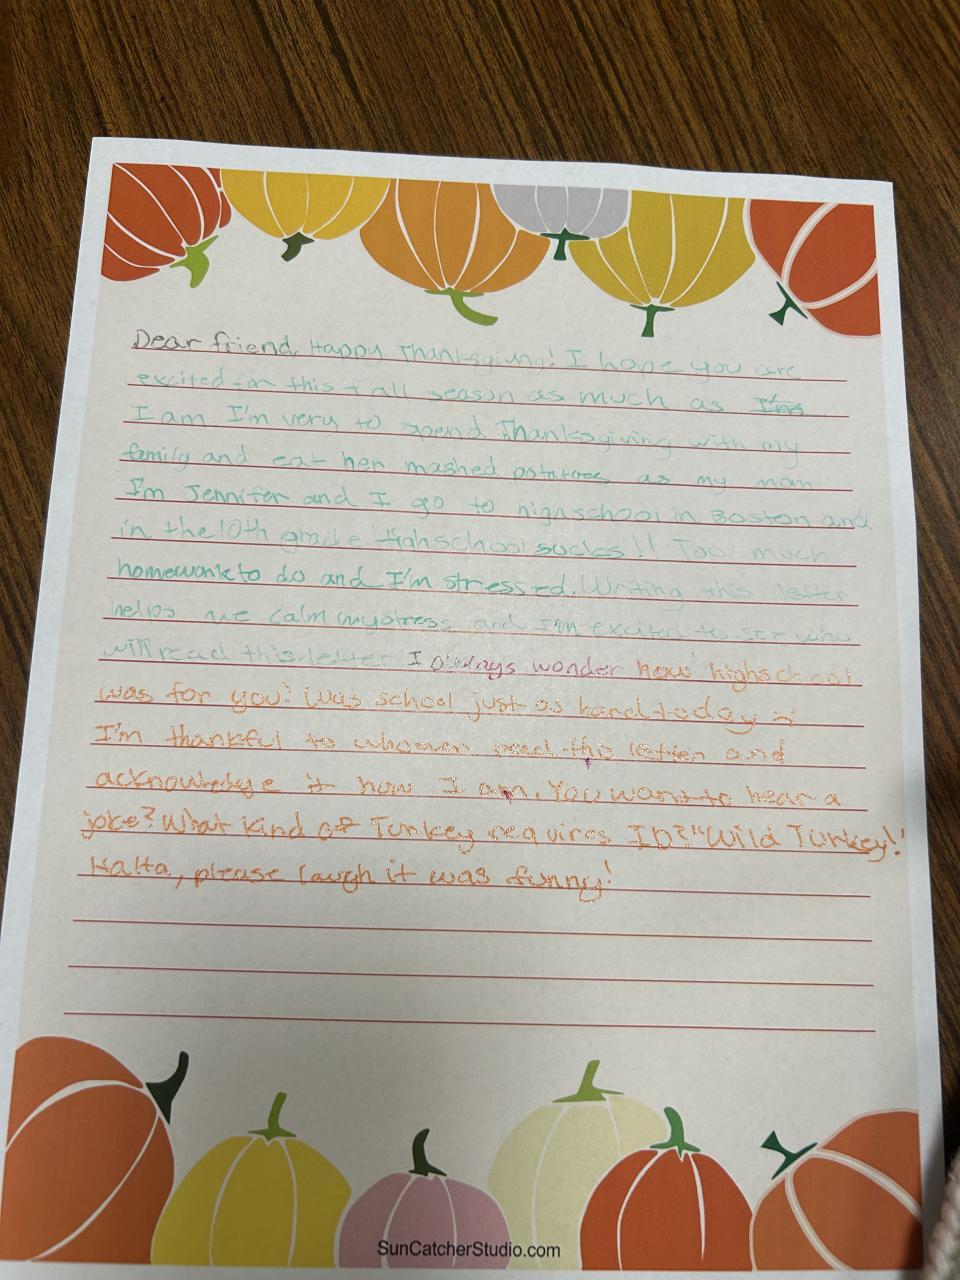 Dear friend, Happy Thanksgiving! I hope you are
excited for this fall season as much as I'm
I am I'm very to spend Thanksgiving with my
family and eat her mashed potatoes as my mom
I'm Jennifer and I go to highschool in Boston and
in the 10th grade Highschool sucks!! Too much
homework to do and I'm stressed. Writing this letter
helps me calm my stress and I'm excited to see who
will read this letter I always wonder how highschool
was for you? Was school just as hard today
I'm thankful to whomever read this letter and
acknowledge it how I am. You want to hear a
joke? What kind of Turkey requires ID? "Wild Turkey!"
HaHa, please laugh it was funny!
SunCatcherStudio.com